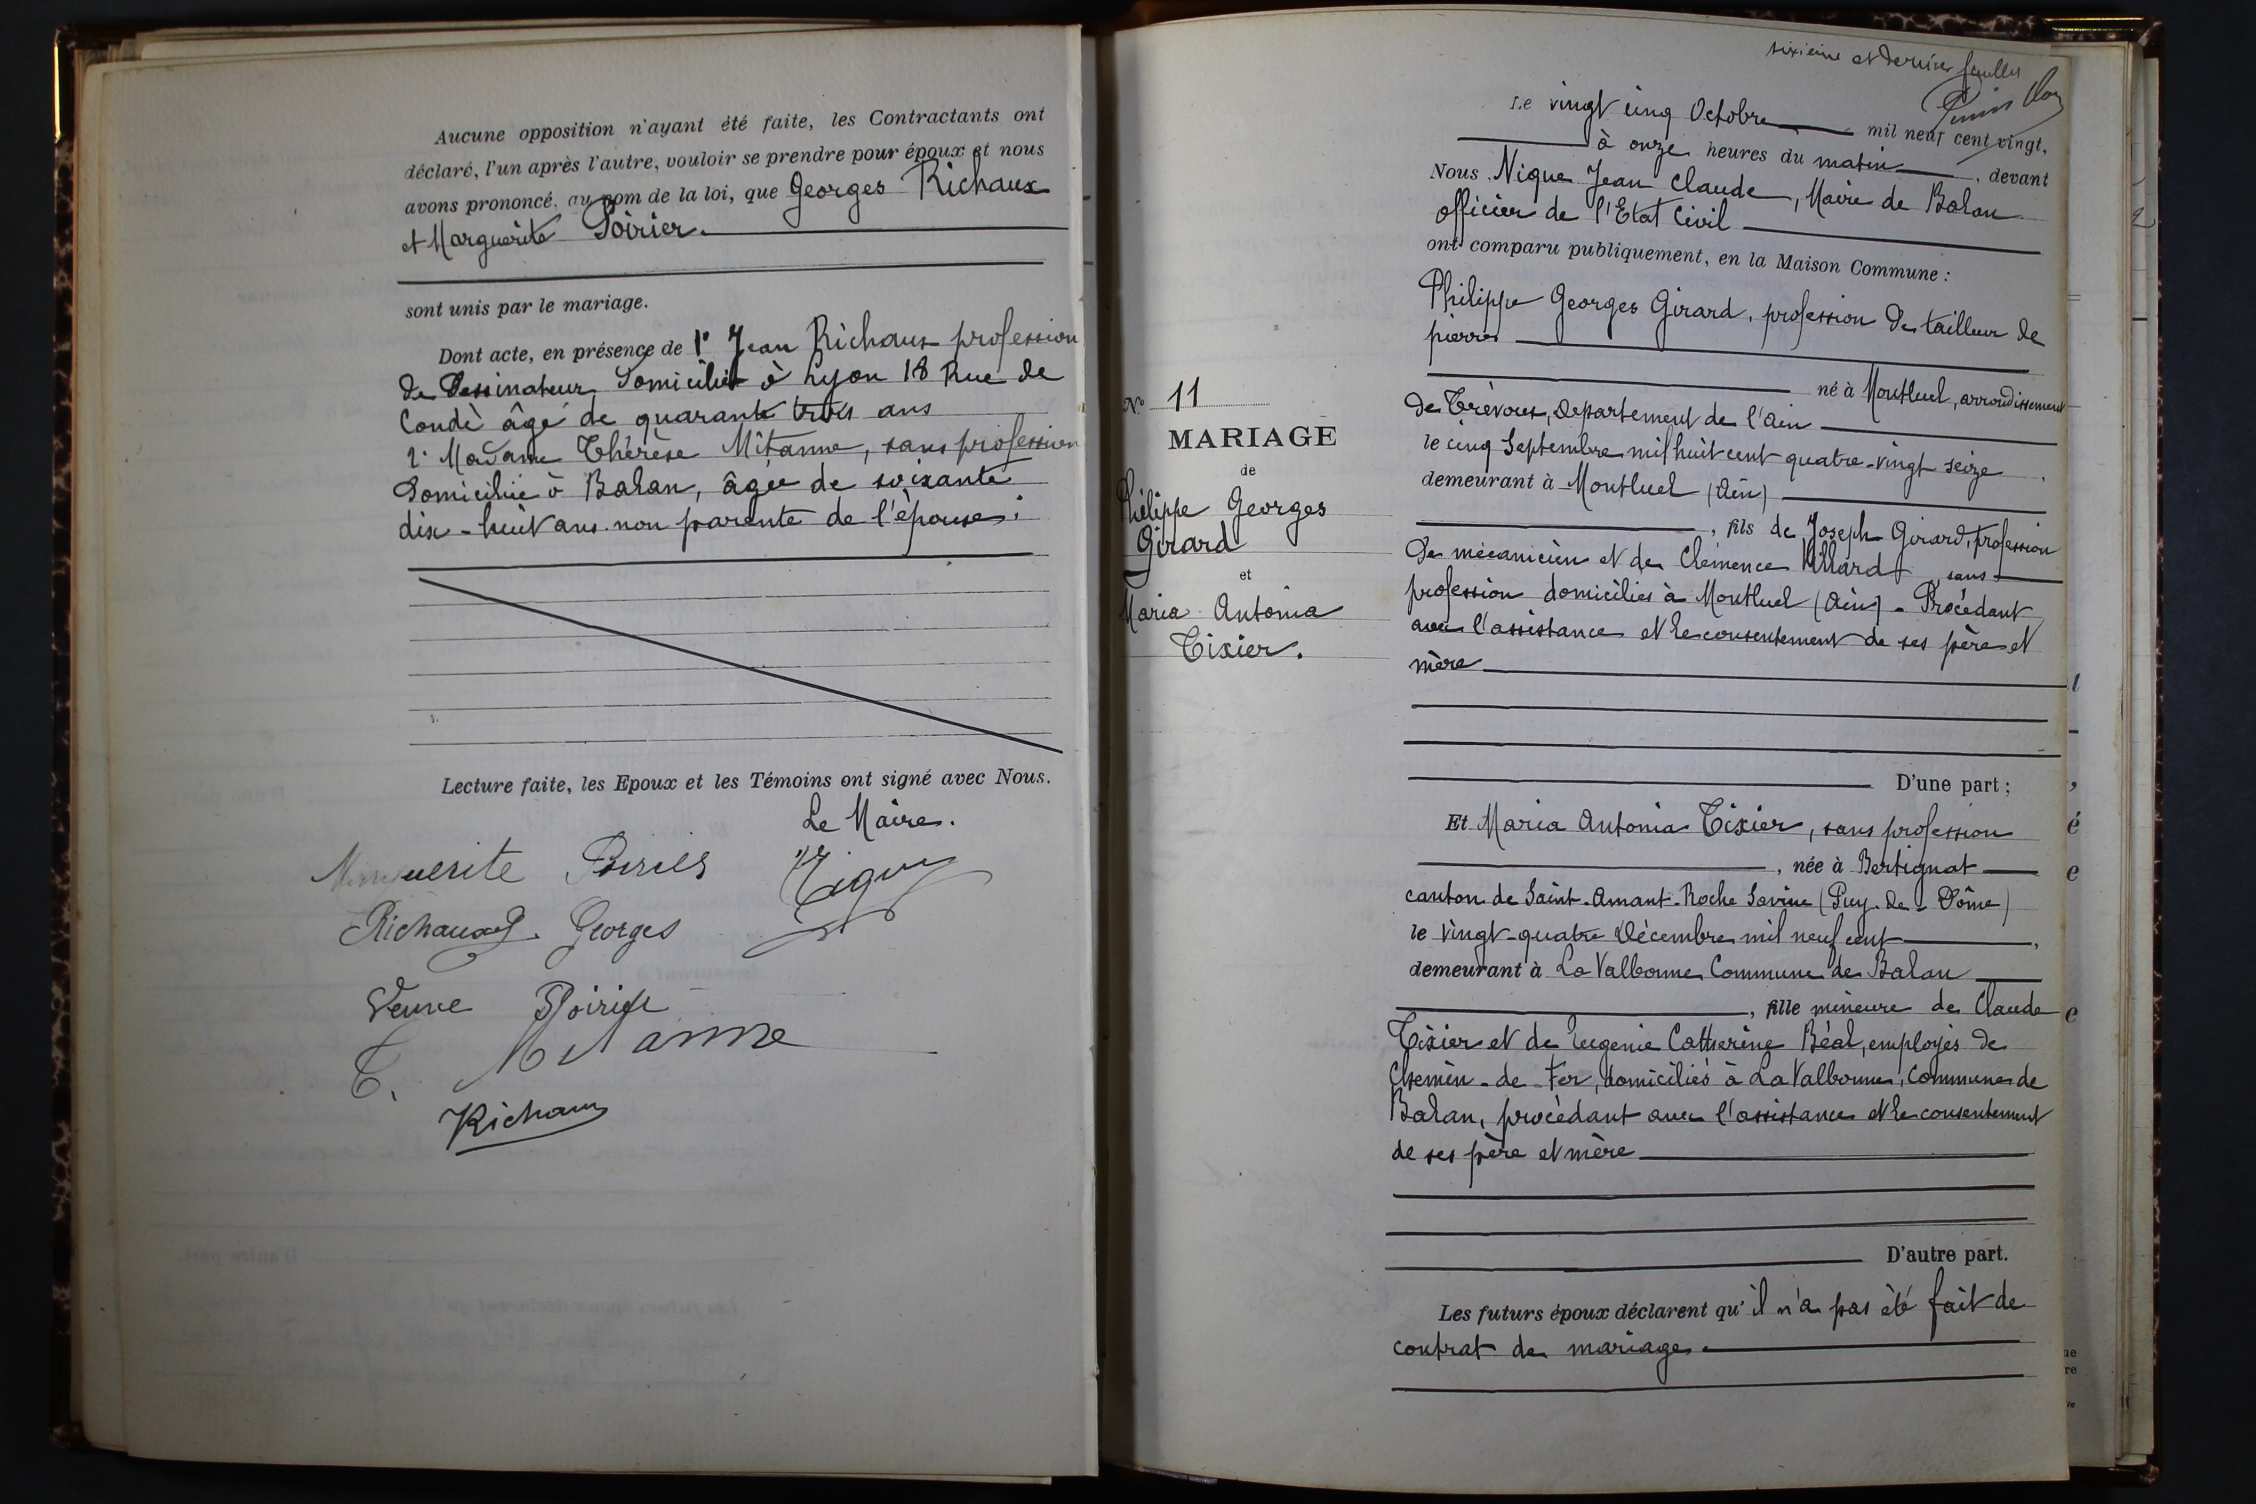 Aucune opposition n'ayant été faite, les Contractants ont
déclaré, l'un après l'autre, vouloir se prendre pour époux et nous
avons prononcé, au nom de la loi, que Georges Richaux
et Marguerite Poirier.
sont unis par le mariage.
Dont acte, en présence de 1° Jean Richaux profession
de Dessinateur domicilié à Lyon 18 Rue de
Condé âgé de quarante trois ans
2° Madame Thérèse Mitanne, sans profession
domiciliée à Balan, âgée de soixante
dix-huit ans non parente de l'épouse.
Lecture faite, les Epoux et les Témoins ont signé avec Nous.
Le Maire.
Marguerite Poirier Nique
Richaux Georges
Veuve Poirier
T. Mitanne
Richaux
sixième et dernier feuillet
Le vingt cinq Octobre mil neuf cent vingt,
à onze heures du matin, devant
Nous Nique Jean Claude, Maire de Balan
officier de l'Etat Civil
ont comparu publiquement, en la Maison Commune :
Philippe Georges Girard, profession de tailleur de
pierres
né à Montluel, arrondissement
de Trévoux, Département de l'Ain
le cinq Septembre mil huit cent quatre-vingt seize,
demeurant à Montluel (Ain)
, fils de Joseph Girard, profession
de mécanicien et de Clémence Villard, sans
profession domiciliés à Montluel (Ain) - Procédant
avec l'assistance et le consentement de ses père et
mère
D'une part ;
N° 11
MARIAGE
de
Philippe Georges
Girard
et
Maria Antonia
Tixier.
Et Maria Antonia Tixier, sans profession
, née à Bertignat
canton de Saint-Amant-Roche Savine (Puy-de-Dôme)
le vingt-quatre Décembre mil neuf cent,
demeurant à La Valbonne Commune de Balan
, fille mineure de Claude
Tixier et de Eugénie Catherine Béal, employés de
Chemin-de-Fer, domiciliés à La Valbonne, commune de
Balan, procédant avec l'assistance et le consentement
de ses père et mère
D'autre part.
Les futurs époux déclarent qu'il n'a pas été fait de
contrat de mariage.